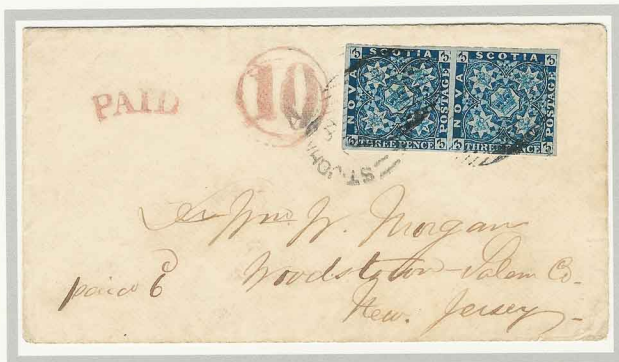 PAID
10
NOVA SCOTIA POSTAGE THREE PENCE
NOVA SCOTIA POSTAGE THREE PENCE
ST. JOHN
Wm. W. Morgan
Woodstown Salem Co.
New. Jersey
paid 6